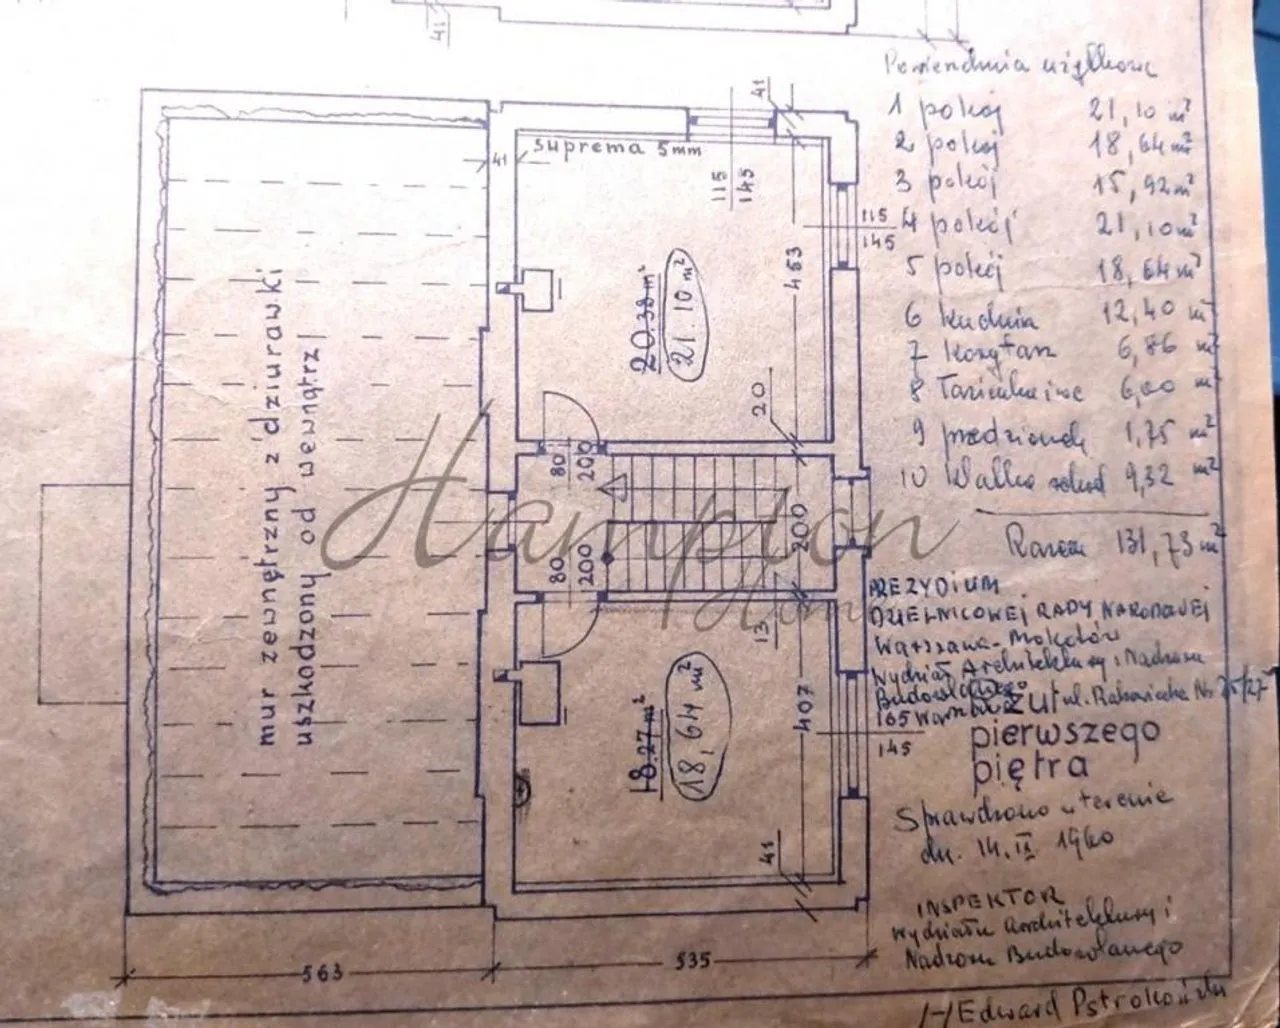 41
41
suprema 5mm
41
115
145
115
145
453
20.38 m²
21.10 m²
mur zewnętrzny z dziurawki
uszkodzony od wewnątrz
20
80
200
200
80
200
13
18.27 m²
18,64 m²
407
165
145
41
563
535
Hampton
Home
Pomieszczenia użytkowe
1 pokój 21,10 m²
2 pokój 18,64 m²
3 pokój 15,92 m²
4 pokój 21,10 m²
5 pokój 18,64 m²
6 kuchnia 12,40 m²
7 korytarz 6,86 m²
8 Łazienka i wc 6,00 m²
9 przedsionek 1,75 m²
10 9,32 m²
Razem 131,73 m²
PREZYDIUM
DZIELNICOWEJ RADY NARODOWEJ
Warszawa-Mokotów
Wydział Architektury i Nadzoru
Budowlanego
Warszawa ul. Rakowiecka Nr 25/27
rzut
pierwszego
piętra
Sprawdzono w terenie
dn. 14.IX 1960
INSPEKTOR
Wydziału Architektury i
Nadzoru Budowlanego
/-/ Edward Pstrokoński